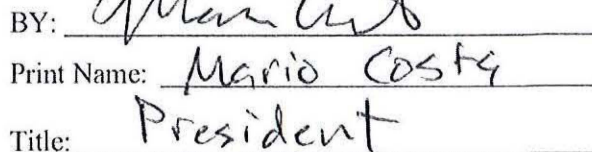 BY:
Print Name: Mario Costa
Title: President